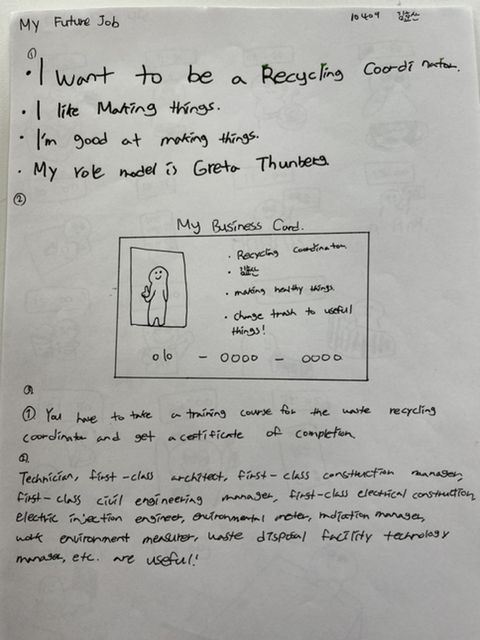 My Future Job
10409 김윤산
①
• I want to be a Recycling Coordinator.
• I like Making things.
• I'm good at making things.
• My role model is Greta Thunberg
②
My Business Card.
• Recycling coordinator
• making healthy things.
• change trash to useful
things!
010 - 0000 - 0000
① You have to take a training course for the waste recycling
coordinator and get a certificate of completion.
②
Technician, first-class architect, first-class construction manager,
first-class civil engineering manager, first-class electrical construction,
electric injection engineer, environmental meter, radiation manager,
work environment measurer, waste disposal facility technology
manager, etc. are useful!